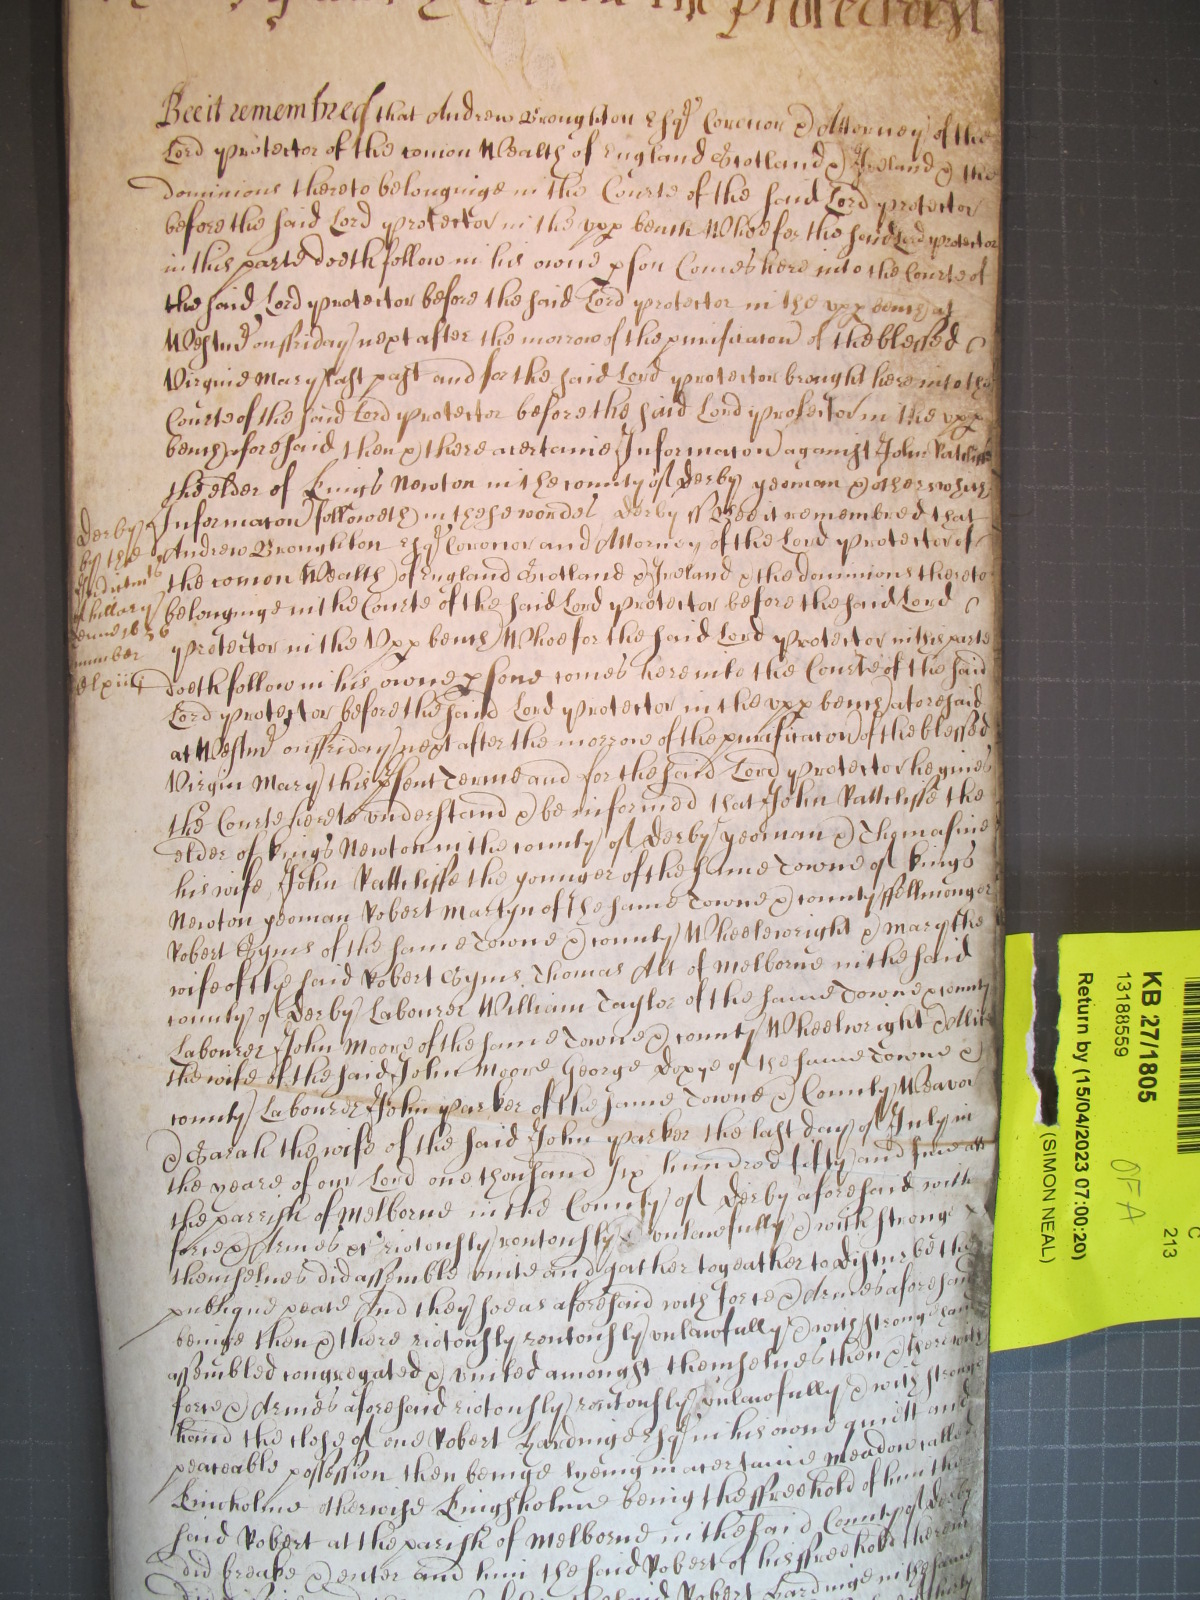 the protector
Bee it remembred that Andrew Broughton Esqr Coronor & Attorney of the
Lord protector of the comon Wealth of England Scotland & Ireland & the
dominions thereto belonginge in the Courte of the said Lord protector
before the said Lord protector in the upp bench Whoe for the said Lord protector
in this parte doeth follow in his owne pson Comes here into the Courte of
the said Lord protector before the said Lord protector in the upp bench at
Westmr on ffriday next after the morrow of the purificacon of the blessed
Virgine Mary last past and for the said Lord protector brought here into the
Courte of the said Lord protector before the said Lord protector in the upp
bench aforesaid then & there a certaine Informacon against John Ratcliffe
the elder of Kings Newton in the county of Derby yeoman & others which
Informacon followeth in these wordes Derby ss Bee it remembred that
Andrew Broughton Esqr Coronor and Attorney of the Lord protector of
the comon Wealth of England Scotland & Ireland & the dominions thereto
belonginge in the Courte of the said Lord protector before the said Lord
protector in the Upp bench Whoe for the said Lord protector in this parte
doeth follow in his owne psone comes here into the Courte of the said
Lord protector before the said Lord protector in the upp bench aforesaid
at Westmr on ffriday next after the morrow of the purificacon of the blessed
Virgin Mary this psent Terme and for the said Lord protector he gives
the Courte here to understand & be informed that John Rattcliffe the
elder of Kings Newton in the county of Derby yeoman & Thomasine
his wife John Rattcliffe the younger of the same Towne of Kings
Newton yeoman Robert Martyn of the same Towne & county ffellmonger
Robert Syms of the same Towne & county Wheelewright & Mary the
wife of the said Robert Syms Thomas Alt of Melborne in the said
county of Derby Labourer William Taylor of the same Towne & county
Labourer John Moore of the same Towne & county Wheelwright &
the wife of the said John Moore George Doxye of the same Towne &
county Labourer John parker of the same Towne & County Weavor
& Sarah the wife of the said John parker the last day of July in
the yeare of our Lord one thousand six hundred fifty and five att
the parrish of Melborne in the County of Derby aforesaid with
force & Armes & riotously routously & unlawfully & with strong
themselves did assemble unite and gather togeather to disturbe the
publique peace And they soe as aforesaid with force & Armes aforesaid
beinge then & there riotously routously unlawfully & with strong hand
assembled congregated & united amongst themselves then & there with
force & Armes aforesaid riotously routously unlawfully & with stronge
hand the close of one Robert Hardinge Esqr in his owne quiett and
peaceable possession then beinge lyeing in a certaine meadow called
Kinholme otherwise Kingsholme being the ffreehold of him the
said Robert at the parish of Melborne in the said County of Derby
did breake & enter and him the said Robert of his ffreehold therein
the said Robert Hardinge in the same
Derby
by the
Indictmts
of hillary
terme 1656
number
clxiiij
KB 27/1805
13188559
Return by (15/04/2023 07:00:20)
(SIMON NEAL)
OFA
C
213